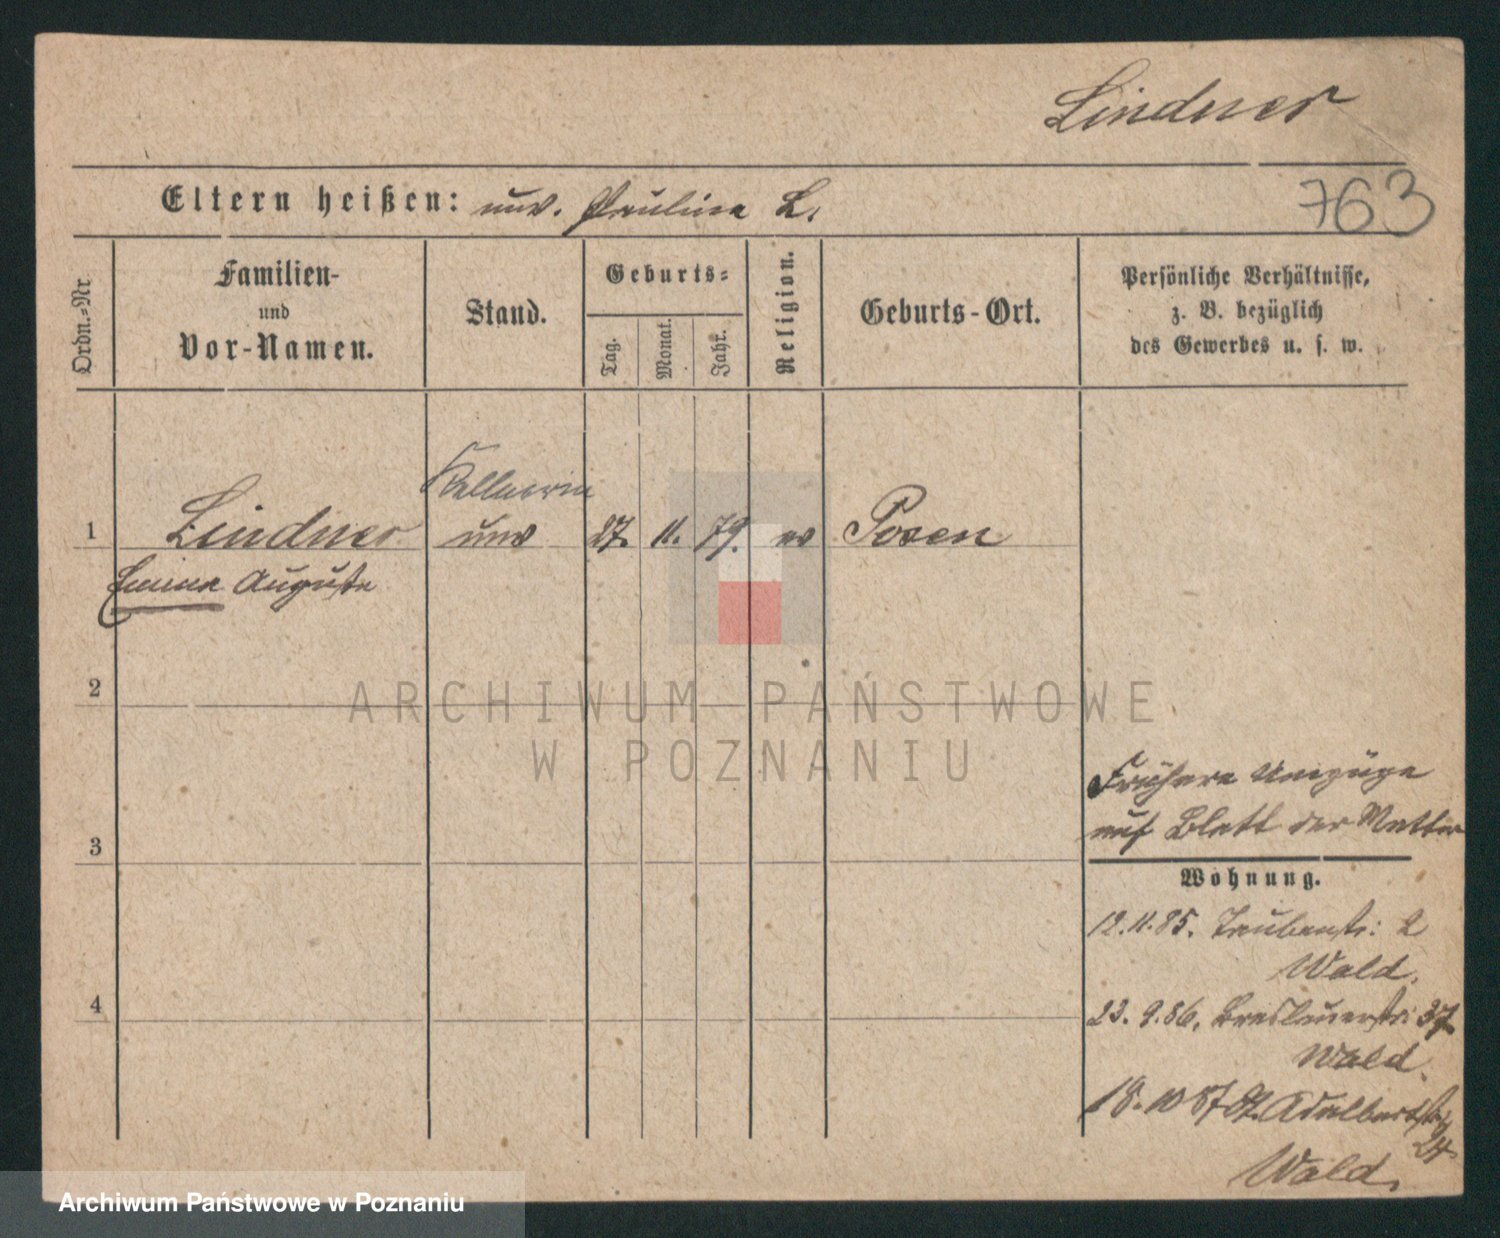 Lindner
Eltern heißen: unv. Paulina L.
763
Ordn.-Nr.
Familien-
und
Vor-Namen.
Stand.
Geburts-
Tag.
Monat.
Jahr.
Religion.
Geburts-Ort.
Persönliche Verhältnisse,
z. B. bezüglich
des Gewerbes u. s. w.
Kellnerin
1 Lindner unv 27. 11. 79. ev Posen
Emma Auguste
2
ARCHIWUM PAŃSTWOWE
W POZNANIU
Frühere Umzüge
auf Blatt der Mutter
3
Wohnung.
12.11.85. Taubenstr: 2
Wald.
4
23. 9.86. Breslauerstr: 37
Wald.
18. 10 87 St. Adalbertstr
24.
Wald.
Archiwum Państwowe w Poznaniu